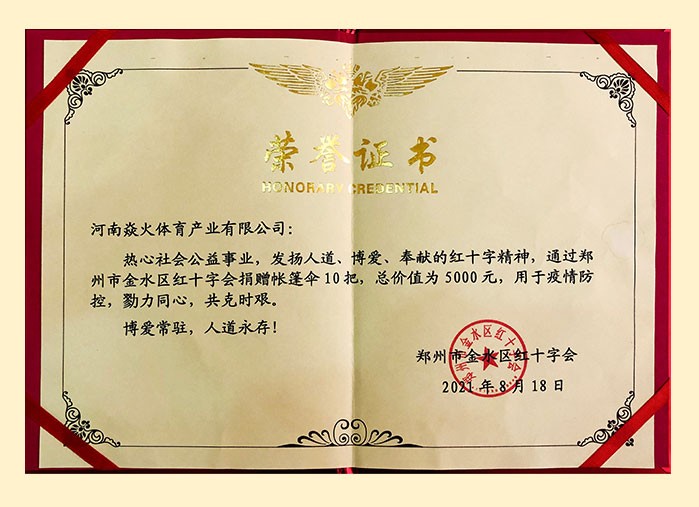 荣誉证书
HONORARY CREDENTIAL
河南焱火体育产业有限公司：
热心社会公益事业，发扬人道、博爱、奉献的红十字精神，通过郑
州市金水区红十字会捐赠帐篷伞10把，总价值为5000元，用于疫情防
控，勠力同心，共克时艰。
博爱常驻，人道永存！
郑州市金水区红十字会
2021年8月18日
郑州市金水区红十字会